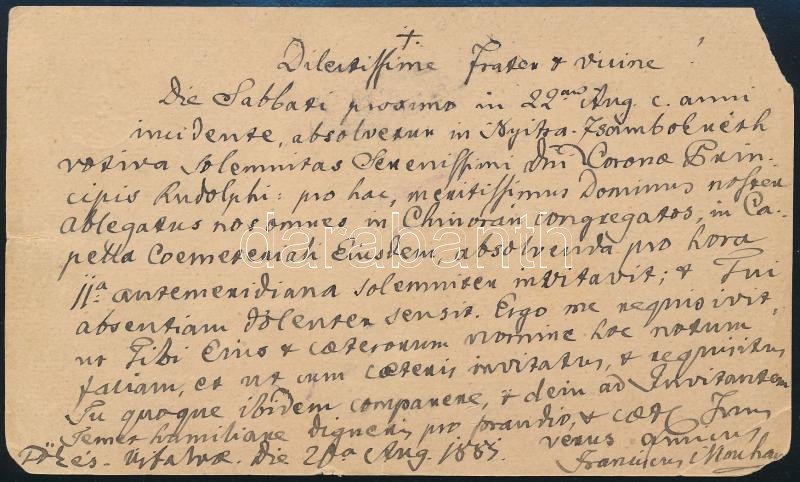 +
Dilectissime Frater & vicine !
Die Sabbati proximo in 22am Aug. c. anni
incidente, absolvetur in Nyitra-Zsámbokréth
votiva solemnitas Serenissimi Dni Coronae Prin-
cipis Rudolphi: pro hac, meritissimus Dominus noster
Ablegatus nos omnes in Chinorán congregatos, in Ca-
pella Coemeteriali Eiusdem, absolvenda pro hora
11a antemeridiana solemniter invitavit; & Tui
absentiam dolenter sensit. Ergo me requisivit,
ut Tibi Eius & caeterorum nomine hoc notum
faciam, et ut cum caeteris invitatus, & requisitus
Tu quoque ibidem comparere, & dein ad Invitantem
Temet humiliare digneris pro prandio, & caet.
verus amicus
Die 20a Aug 1885.
Franciscus
darabanth